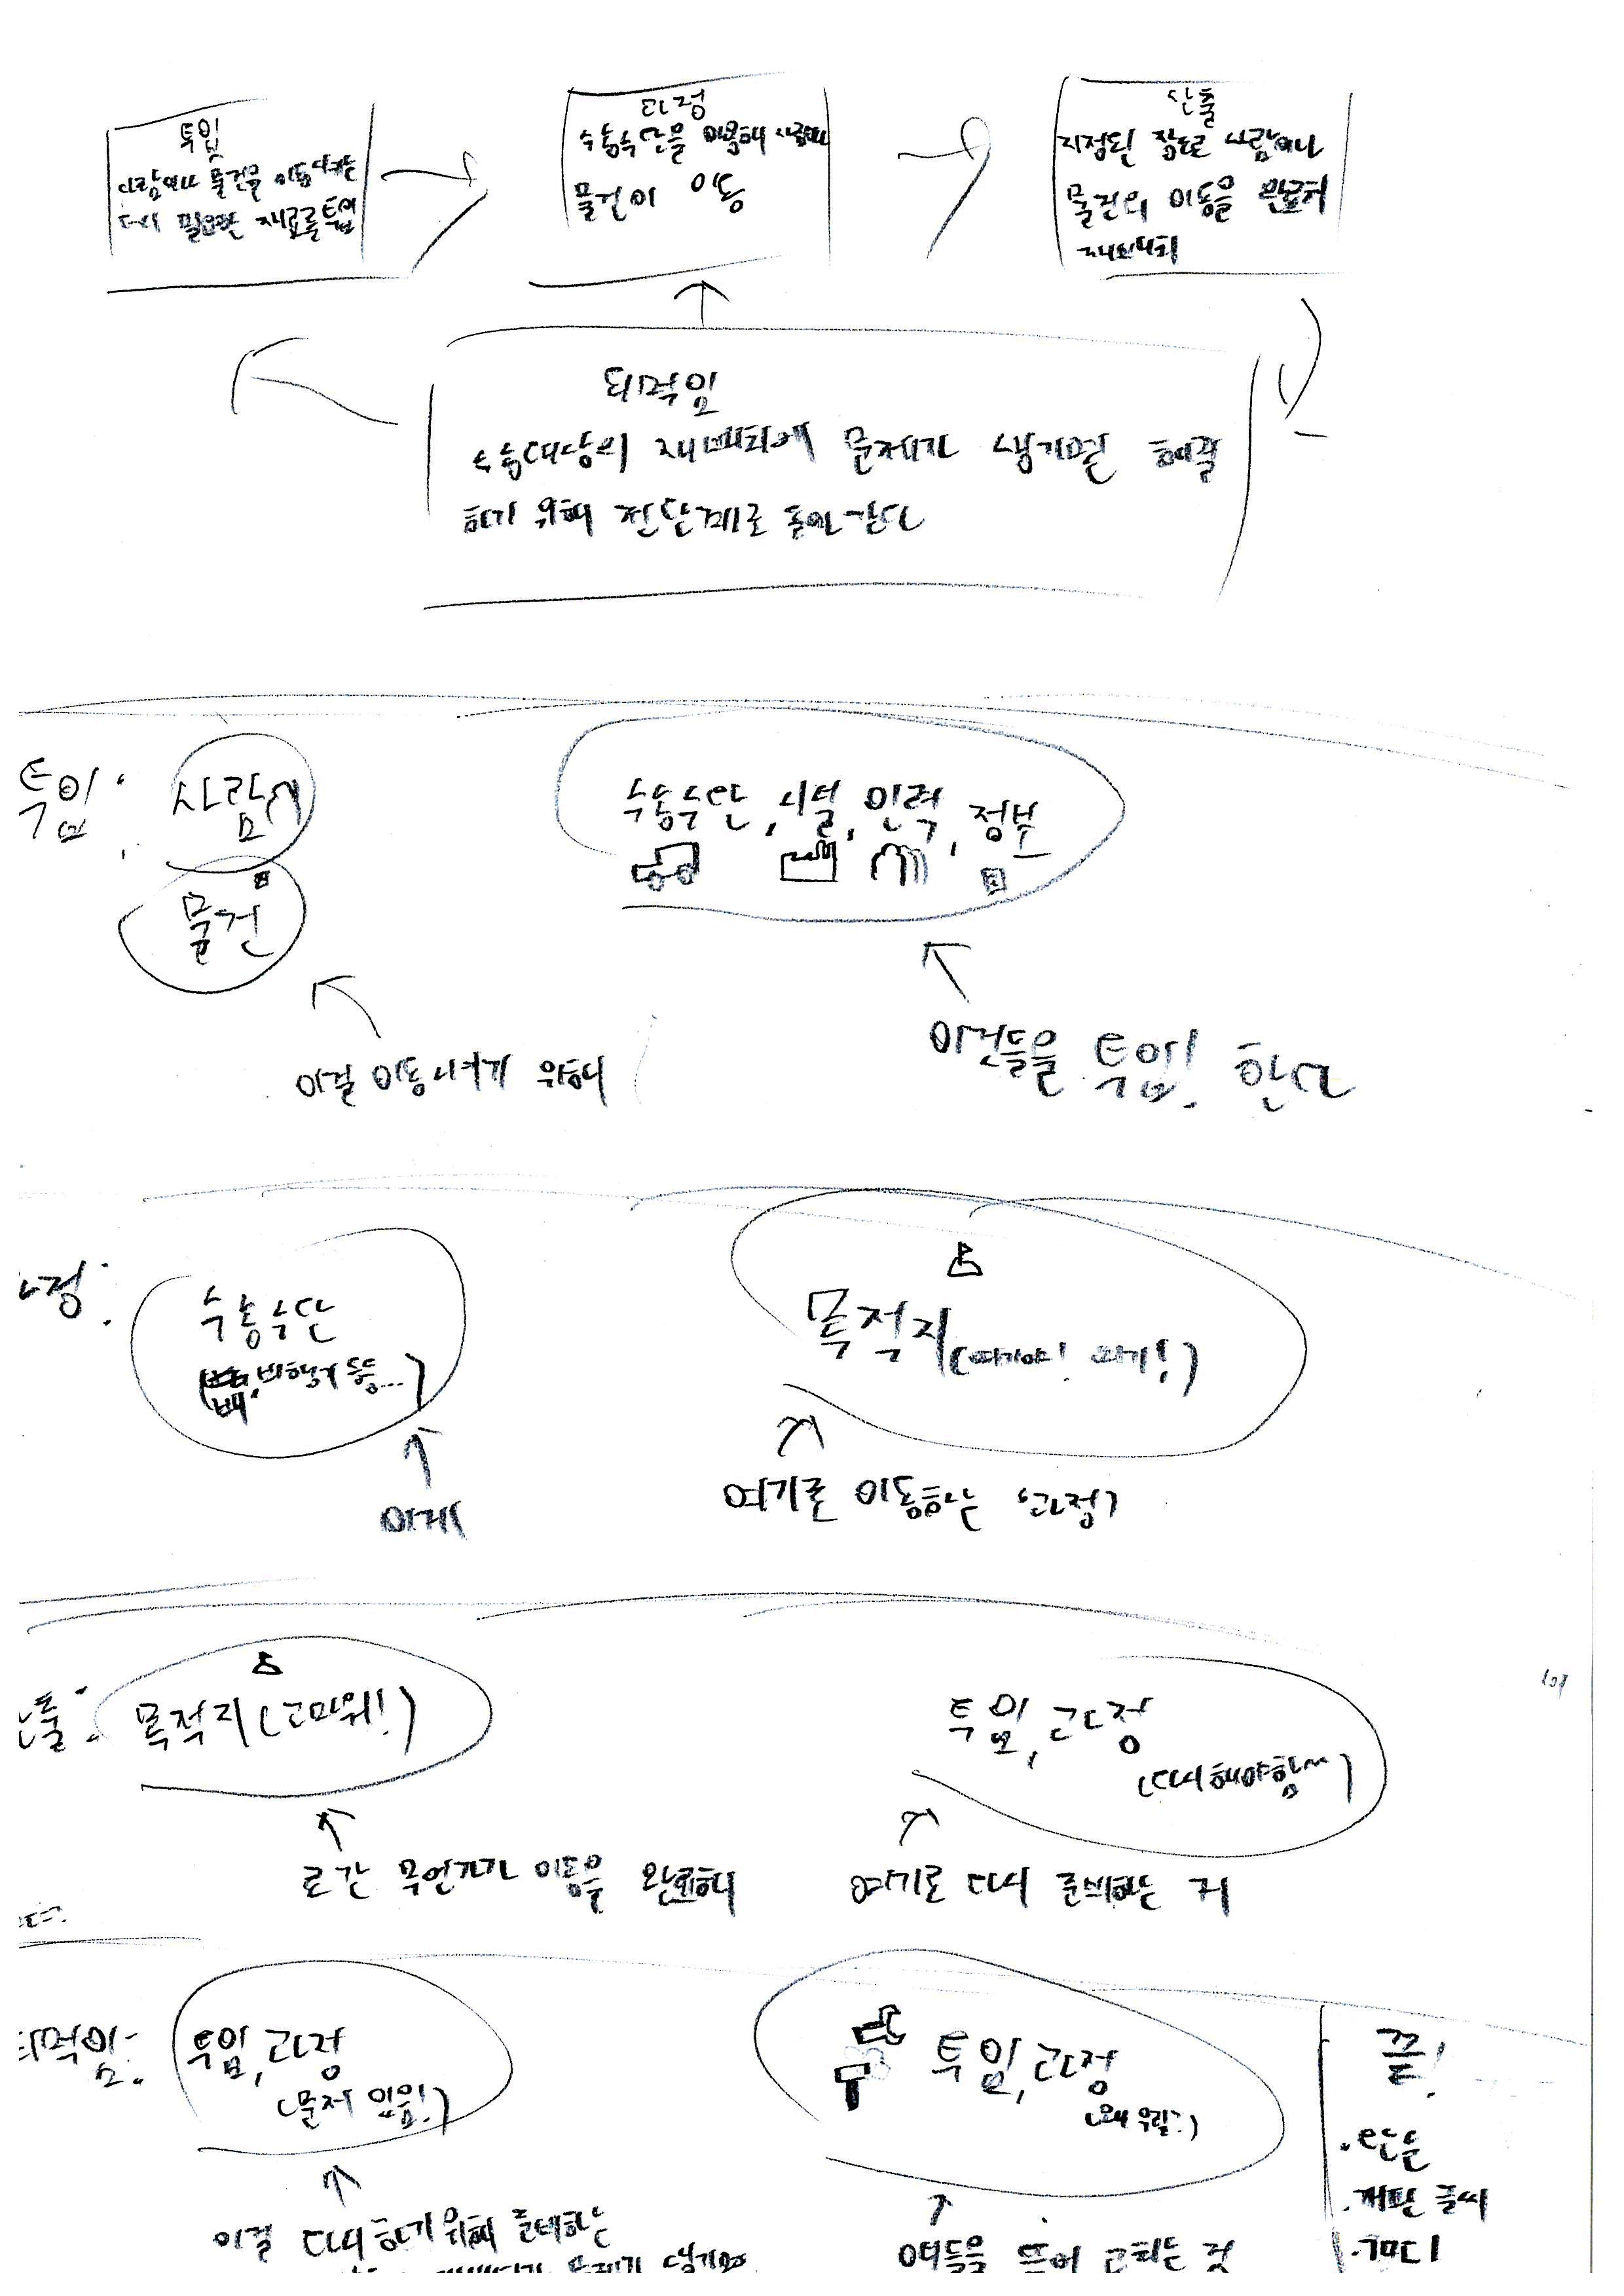 투입
사람이나 물건을 이동
필요한 재료를 투입
과정
수송수단을 이용해 사람이나
물건이 이동
산출
지정된 장소로 사람이나
물건의 이동을 완료해
재분배
되먹임
수송대상의 재분배에 문제가 생기면 해결
하기 위해 전단계로 돌아간다
투입:
사람
수송수단, 시설, 인력, 정보
물건
이걸 이동시키기 위해
이것들을 투입! 한다
정:
수송수단
(배, 비행기 등등...)
목적지 (여기야! 와기!)
이게
여기로 이동하는 '과정'
출:
목적지 (고마워!)
투입, 과정
(다시해야함~)
로간 무언가가 이동을 완료해
여기로 다시 준비하는 거
되먹임:
투입, 과정
(문제 있음!)
투입, 과정
(왜 우릴?)
끝!
이걸 다시하기위해 준비하는
얘들을 뜯어 고치는 것
·만든
·개판 글씨